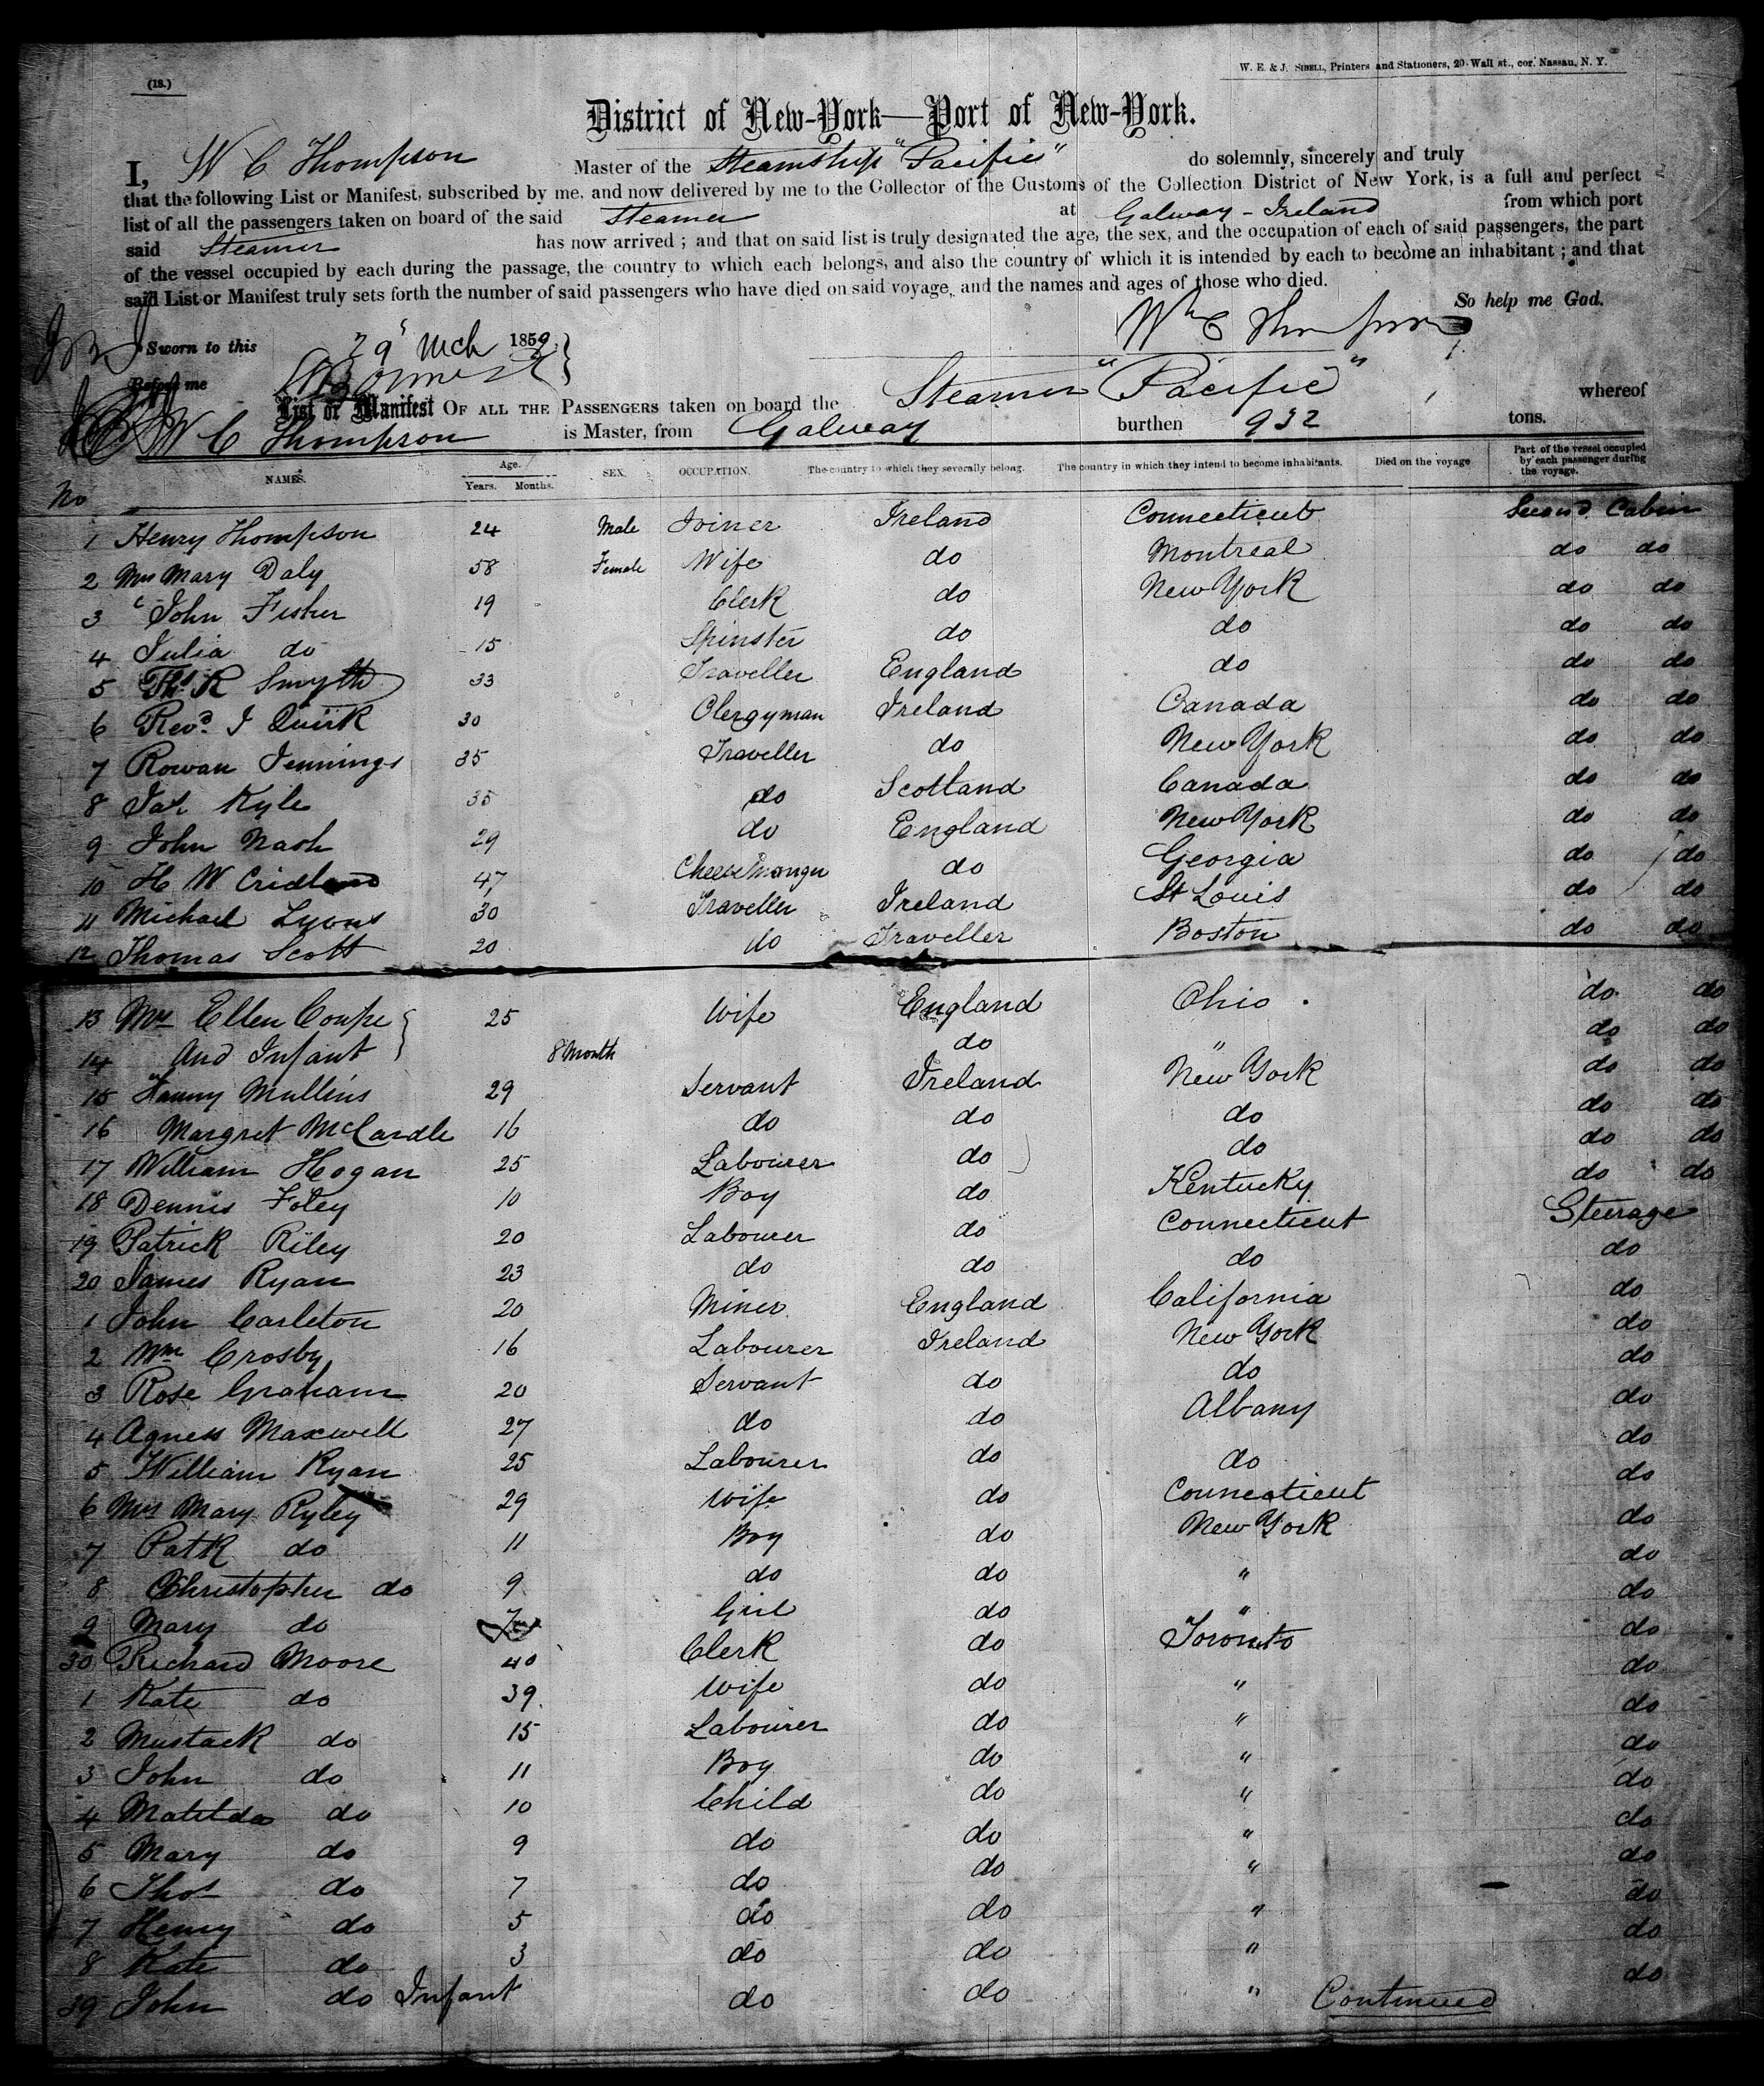 (18.)
W. E. & J. SIBELL, Printers and Stationers, 20 Wall st., cor. Nassau, N. Y.
District of New-York—Port of New-York.
I, W C Thompson Master of the Steamship "Pacific" do solemnly, sincerely and truly
that the following List or Manifest, subscribed by me, and now delivered by me to the Collector of the Customs of the Collection District of New York, is a full and perfect
list of all the passengers taken on board of the said Steamer at Galway - Ireland from which port
said Steamer has now arrived ; and that on said list is truly designated the age, the sex, and the occupation of each of said passengers, the part
of the vessel occupied by each during the passage, the country to which each belongs, and also the country of which it is intended by each to become an inhabitant ; and that
said List or Manifest truly sets forth the number of said passengers who have died on said voyage, and the names and ages of those who died.
So help me God.
Wm C Thompson
Sworn to this 29 Mch 1859
Before me
List or Manifest OF ALL THE PASSENGERS taken on board the Steamer "Pacific" whereof
W C Thompson is Master, from Galway burthen 932 tons.
NAMES. Age. Years. Months. SEX. OCCUPATION. The country to which they severally belong. The country in which they intend to become inhabitants. Died on the voyage Part of the vessel occupied by each passenger during the voyage.
No
1 Henry Thompson 24 Male Joiner Ireland Connecticut Second Cabin
2 Mrs Mary Daly 58 Female Wife do Montreal do do
3 John Fisher 19 Clerk do New York do do
4 Julia do 15 Spinster do do do do
5 Thos R Smyth 33 Traveller England do do do
6 Revd. J Quirk 30 Clergyman Ireland Canada do do
7 Rowan Jennings 35 Traveller do New York do do
8 Jas Kyle 35 do Scotland Canada do do
9 John Nash 29 do England New York do do
10 H W Cridland 47 Cheesemonger do Georgia do do
11 Michael Lyons 30 Traveller Ireland St Louis do do
12 Thomas Scott 20 do Traveller Boston do do
13 Mrs Ellen Coupe 25 Wife England Ohio do do
14 And Infant 8 Month do " do do
15 Fanny Mullins 29 Servant Ireland New York do do
16 Margret McCardle 16 do do do do do
17 William Hogan 25 Labourer do do do do
18 Dennis Foley 10 Boy do Kentucky do do
19 Patrick Riley 20 Labourer do Connecticut Steerage
20 James Ryan 23 do do do do
1 John Carleton 20 Miner England California do
2 Wm Crosby 16 Labourer Ireland New York do
3 Rose Graham 20 Servant do do do
4 Agness Maxwell 27 do do Albany do
5 William Ryan 25 Labourer do do do
6 Mrs Mary Ryley 29 Wife do Connecticut do
7 Patk do 11 Boy do New York do
8 Christopher do 9 do do " do
9 Mary do Girl do " do
30 Richard Moore 40 Clerk do Toronto do
1 Kate do 39 Wife do " do
2 Mustack do 15 Labourer do " do
3 John do 11 Boy do " do
4 Matilda do 10 Child do " do
5 Mary do 9 do do " do
6 Thos do 7 do do " do
7 Henry do 5 do do " do
8 Kate do 3 do do " do
39 John do Infant do do " do
Continued